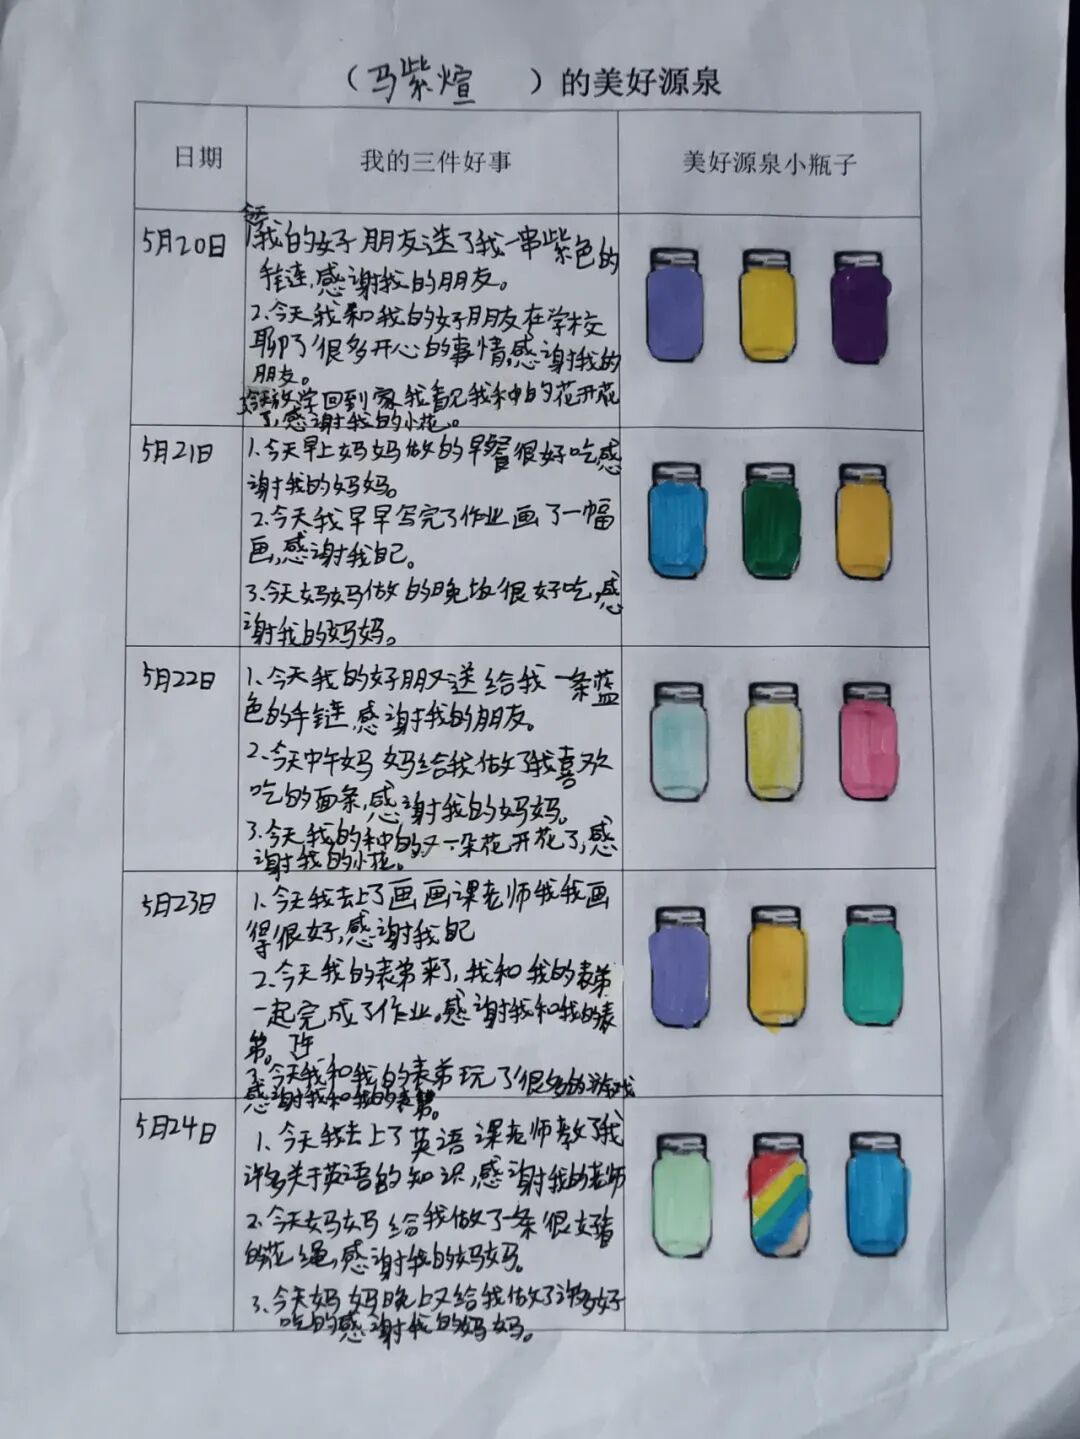 （马紫煊）的美好源泉
日期
我的三件好事
美好源泉小瓶子
5月20日
今天
1我的好朋友送了我一串紫色的
手链,感谢我的朋友。
2.今天我和我的好朋友在学校
聊了很多开心的事情,感谢我的
朋友。
3.今天放学回到家我看见我种的花开花
了,感谢我的小花。
5月21日
1.今天早上妈妈做的早餐很好吃感
谢我的妈妈。
2.今天我早早写完了作业画了一幅
画,感谢我自己。
3.今天妈妈做的晚饭很好吃,感
谢我的妈妈。
5月22日
1.今天我的好朋又送给我一条蓝
色的手链,感谢我的朋友。
2.今天中午妈妈给我做了我喜欢
吃的面条,感谢我的妈妈。
3.今天我的种的又一朵花开花了,感
谢我的小花。
5月23日
1.今天我去上了画画课老师我我画
得很好,感谢我自己
2.今天我的表弟来了,我和我的表弟
一起完成了作业。感谢我和我的表
弟。
下午
3.今天我和我的表弟玩了很多的游戏
感谢我和我的表弟。
5月24日
1.今天我去上了英语课老师教了我
许多关于英语的知识,感谢我的老师
2.今天妈妈给我做了一条很好看
的花绳,感谢我的妈妈。
3.今天妈妈晚上又给我做了许多好
吃的感谢我的妈妈。